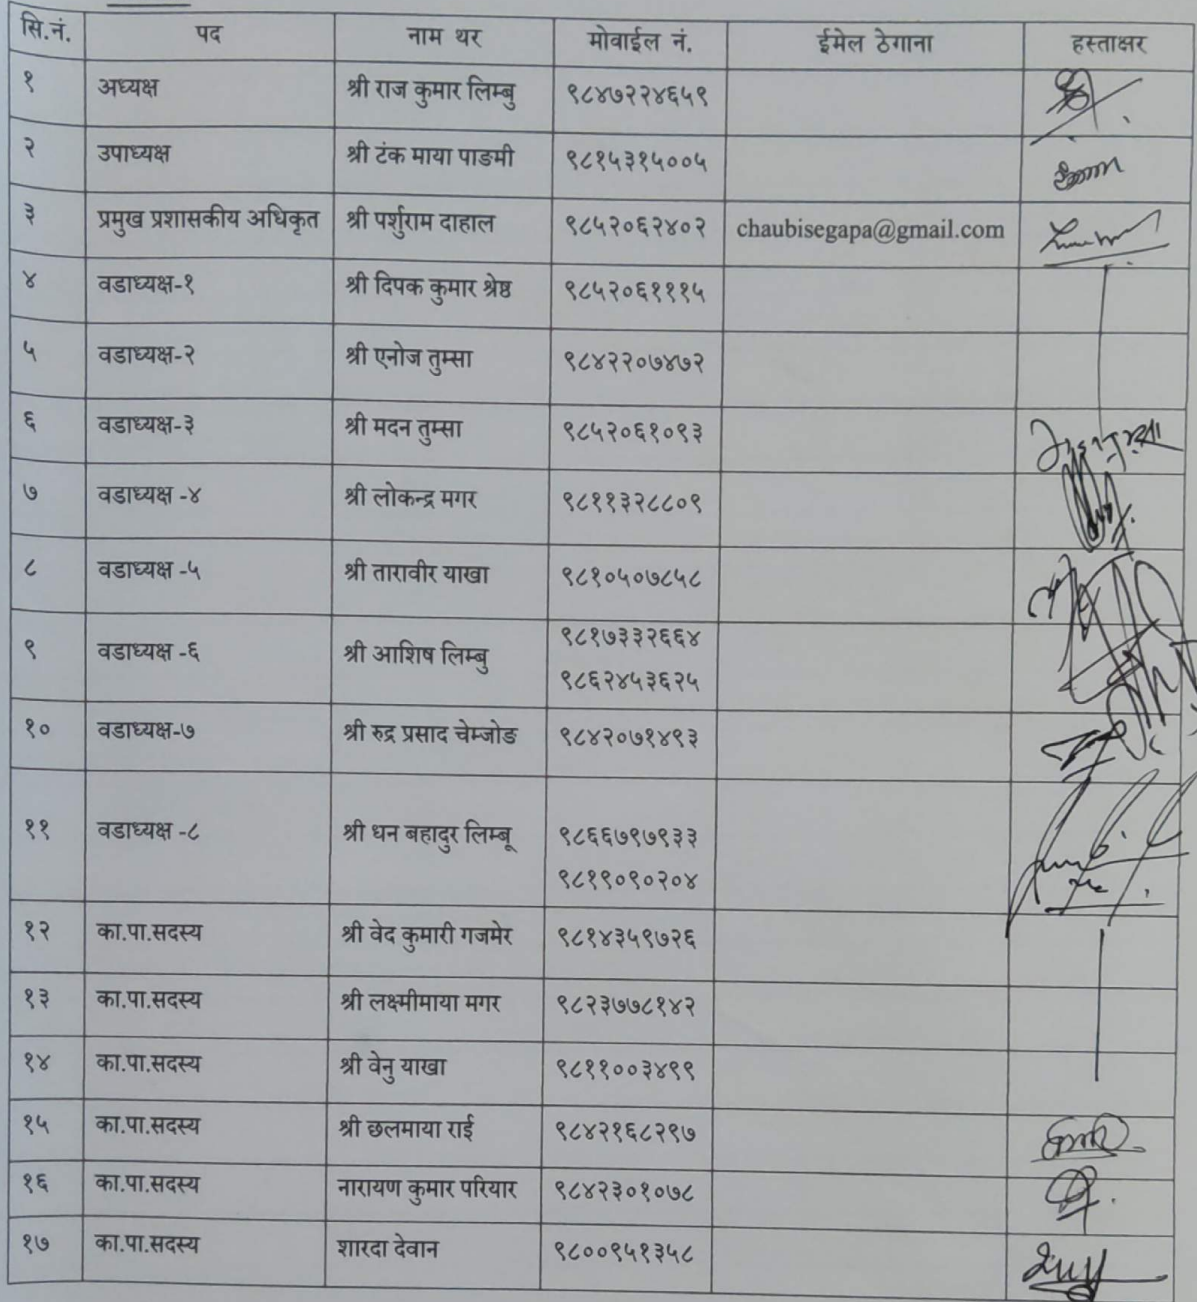 सि.नं. पद नाम थर मोवाईल नं. ईमेल ठेगाना हस्ताक्षर
१ अध्यक्ष श्री राज कुमार लिम्बु ९८४७२२४६५९
२ उपाध्यक्ष श्री टंक माया पाङमी ९८१५३१५००५
३ प्रमुख प्रशासकीय अधिकृत श्री पर्शुराम दाहाल ९८५२०६२४०२ chaubisegapa@gmail.com
४ वडाध्यक्ष-१ श्री दिपक कुमार श्रेष्ठ ९८५२०६१११५
५ वडाध्यक्ष-२ श्री एनोज तुम्सा ९८४२२०७४७२
६ वडाध्यक्ष-३ श्री मदन तुम्सा ९८५२०६१०९३
७ वडाध्यक्ष -४ श्री लोकन्द्र मगर ९८११३२८८०९
८ वडाध्यक्ष -५ श्री तारावीर याखा ९८१०५०७८५८
९ वडाध्यक्ष -६ श्री आशिष लिम्बु ९८१७३३२६६४
९८६२४५३६२५
१० वडाध्यक्ष-७ श्री रुद्र प्रसाद चेम्जोङ ९८४२०७१४९३
११ वडाध्यक्ष -८ श्री धन बहादुर लिम्बू ९८६६७९७९३३
९८१९०९०२०४
१२ का.पा.सदस्य श्री वेद कुमारी गजमेर ९८१४३५९७२६
१३ का.पा.सदस्य श्री लक्ष्मीमाया मगर ९८२३७७८१४२
१४ का.पा.सदस्य श्री वेनु याखा ९८११००३४९९
१५ का.पा.सदस्य श्री छलमाया राई ९८४२१६८२९७
१६ का.पा.सदस्य नारायण कुमार परियार ९८४२३०१०७८
१७ का.पा.सदस्य शारदा देवान ९८००९५१३५८